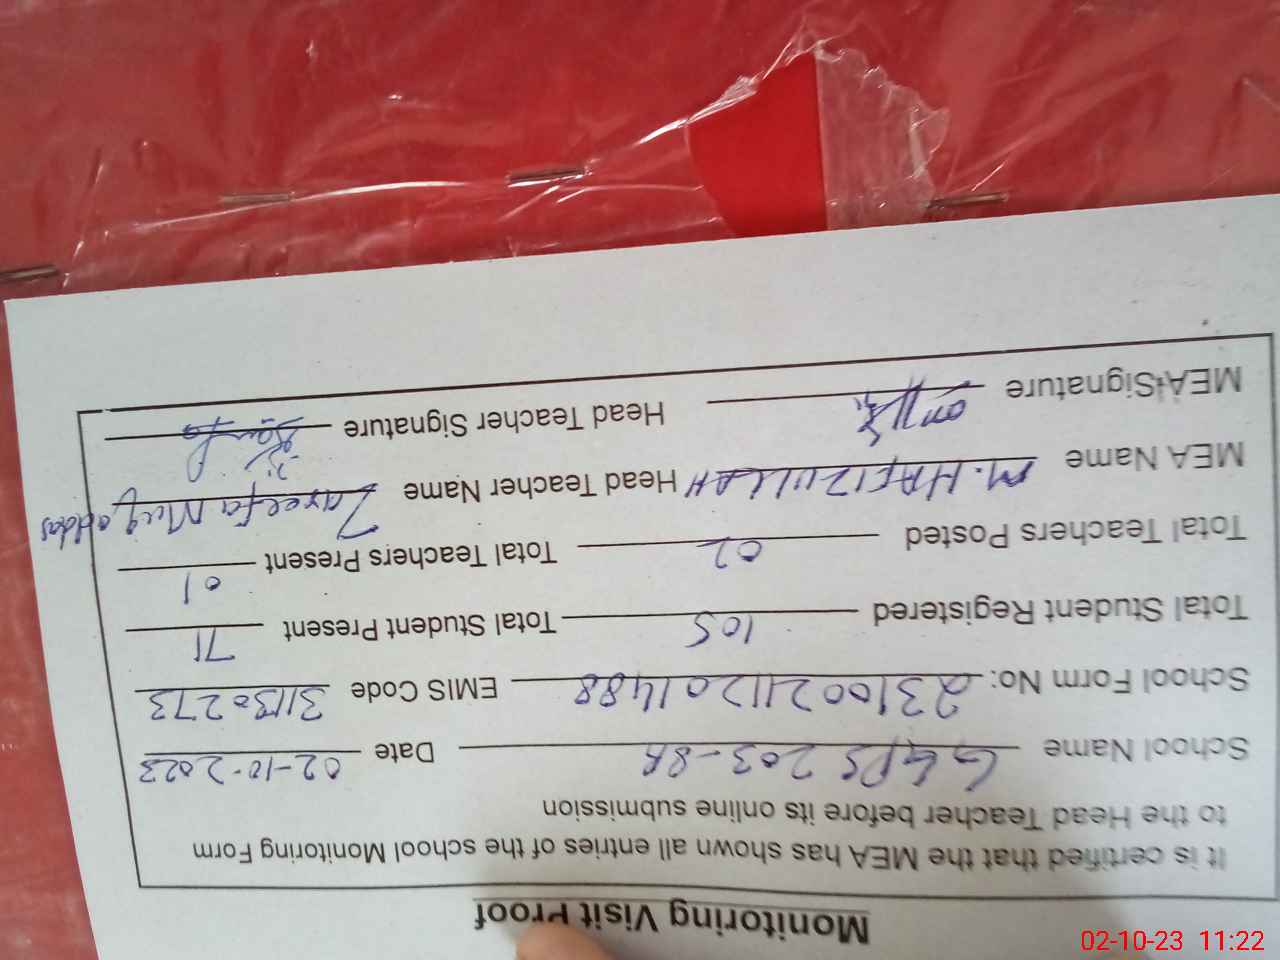 Monitoring Visit Proof
It is certified that the MEA has shown all entries of the school Monitoring Form
to the Head Teacher before its online submission
School Name GGPS 203-8R Date 02-10-2023
School Form No: 23100211201488 EMIS Code 31130273
Total Student Registered 105 Total Student Present 71
Total Teachers Posted 02 Total Teachers Present 01
MEA Name M. HAFIZULLAH Head Teacher Name Zareefa Muqaddas
MEA Signature Head Teacher Signature
02-10-23 11:22